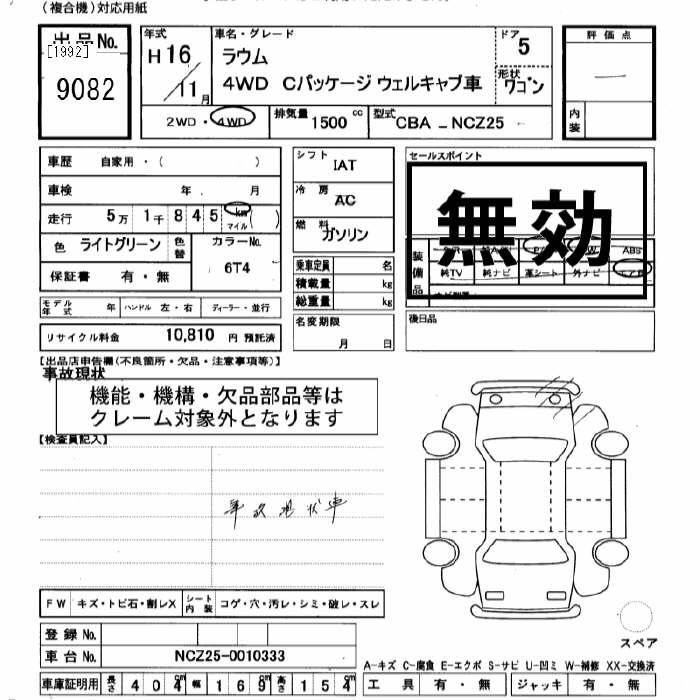 (複合機)対応用紙
出品No.
[1992]
9082
年式
H16
11月
車名・グレード
ラウム
4WD Cパッケージ ウェルキャブ車
ドア
5
形状
ワゴン
2WD・4WD
排気量 1500 cc
型式 CBA - NCZ25
評価点
内装
車歴 自家用・( )
車検 年 月
走行 5万 1千 8 4 5 km マイル ( )
色 ライトグリーン
色替
カラーNo.
6T4
保証書 有・無
モデル年式 年 ハンドル 左・右 ディーラー・並行
リサイクル料金 10,810 円 預託済
シフト IAT
冷房 AC
燃料 ガソリン
乗車定員 名
積載量 kg
総重量 kg
名変期限
月 日
セールスポイント
無効
装備品
ABS
純TV 純ナビ 革シート 外ナビ
後日品
【出品店申告欄(不良箇所・欠品・注意事項等)】
事故現状
機能・機構・欠品部品等は
クレーム対象外となります
【検査員記入】
事故現状車
FW キズ・トビ石・割レX
シート内装 コゲ・穴・汚レ・シミ・破レ・スレ
登録No.
車台No. NCZ25-0010333
車庫証明用 長さ 404 幅 169 高さ 154
スペア
A-キズ C-腐食 E-エクボ S-サビ U-凹ミ W-補修 XX-交換済
工具 有・無 ジャッキ 有・無